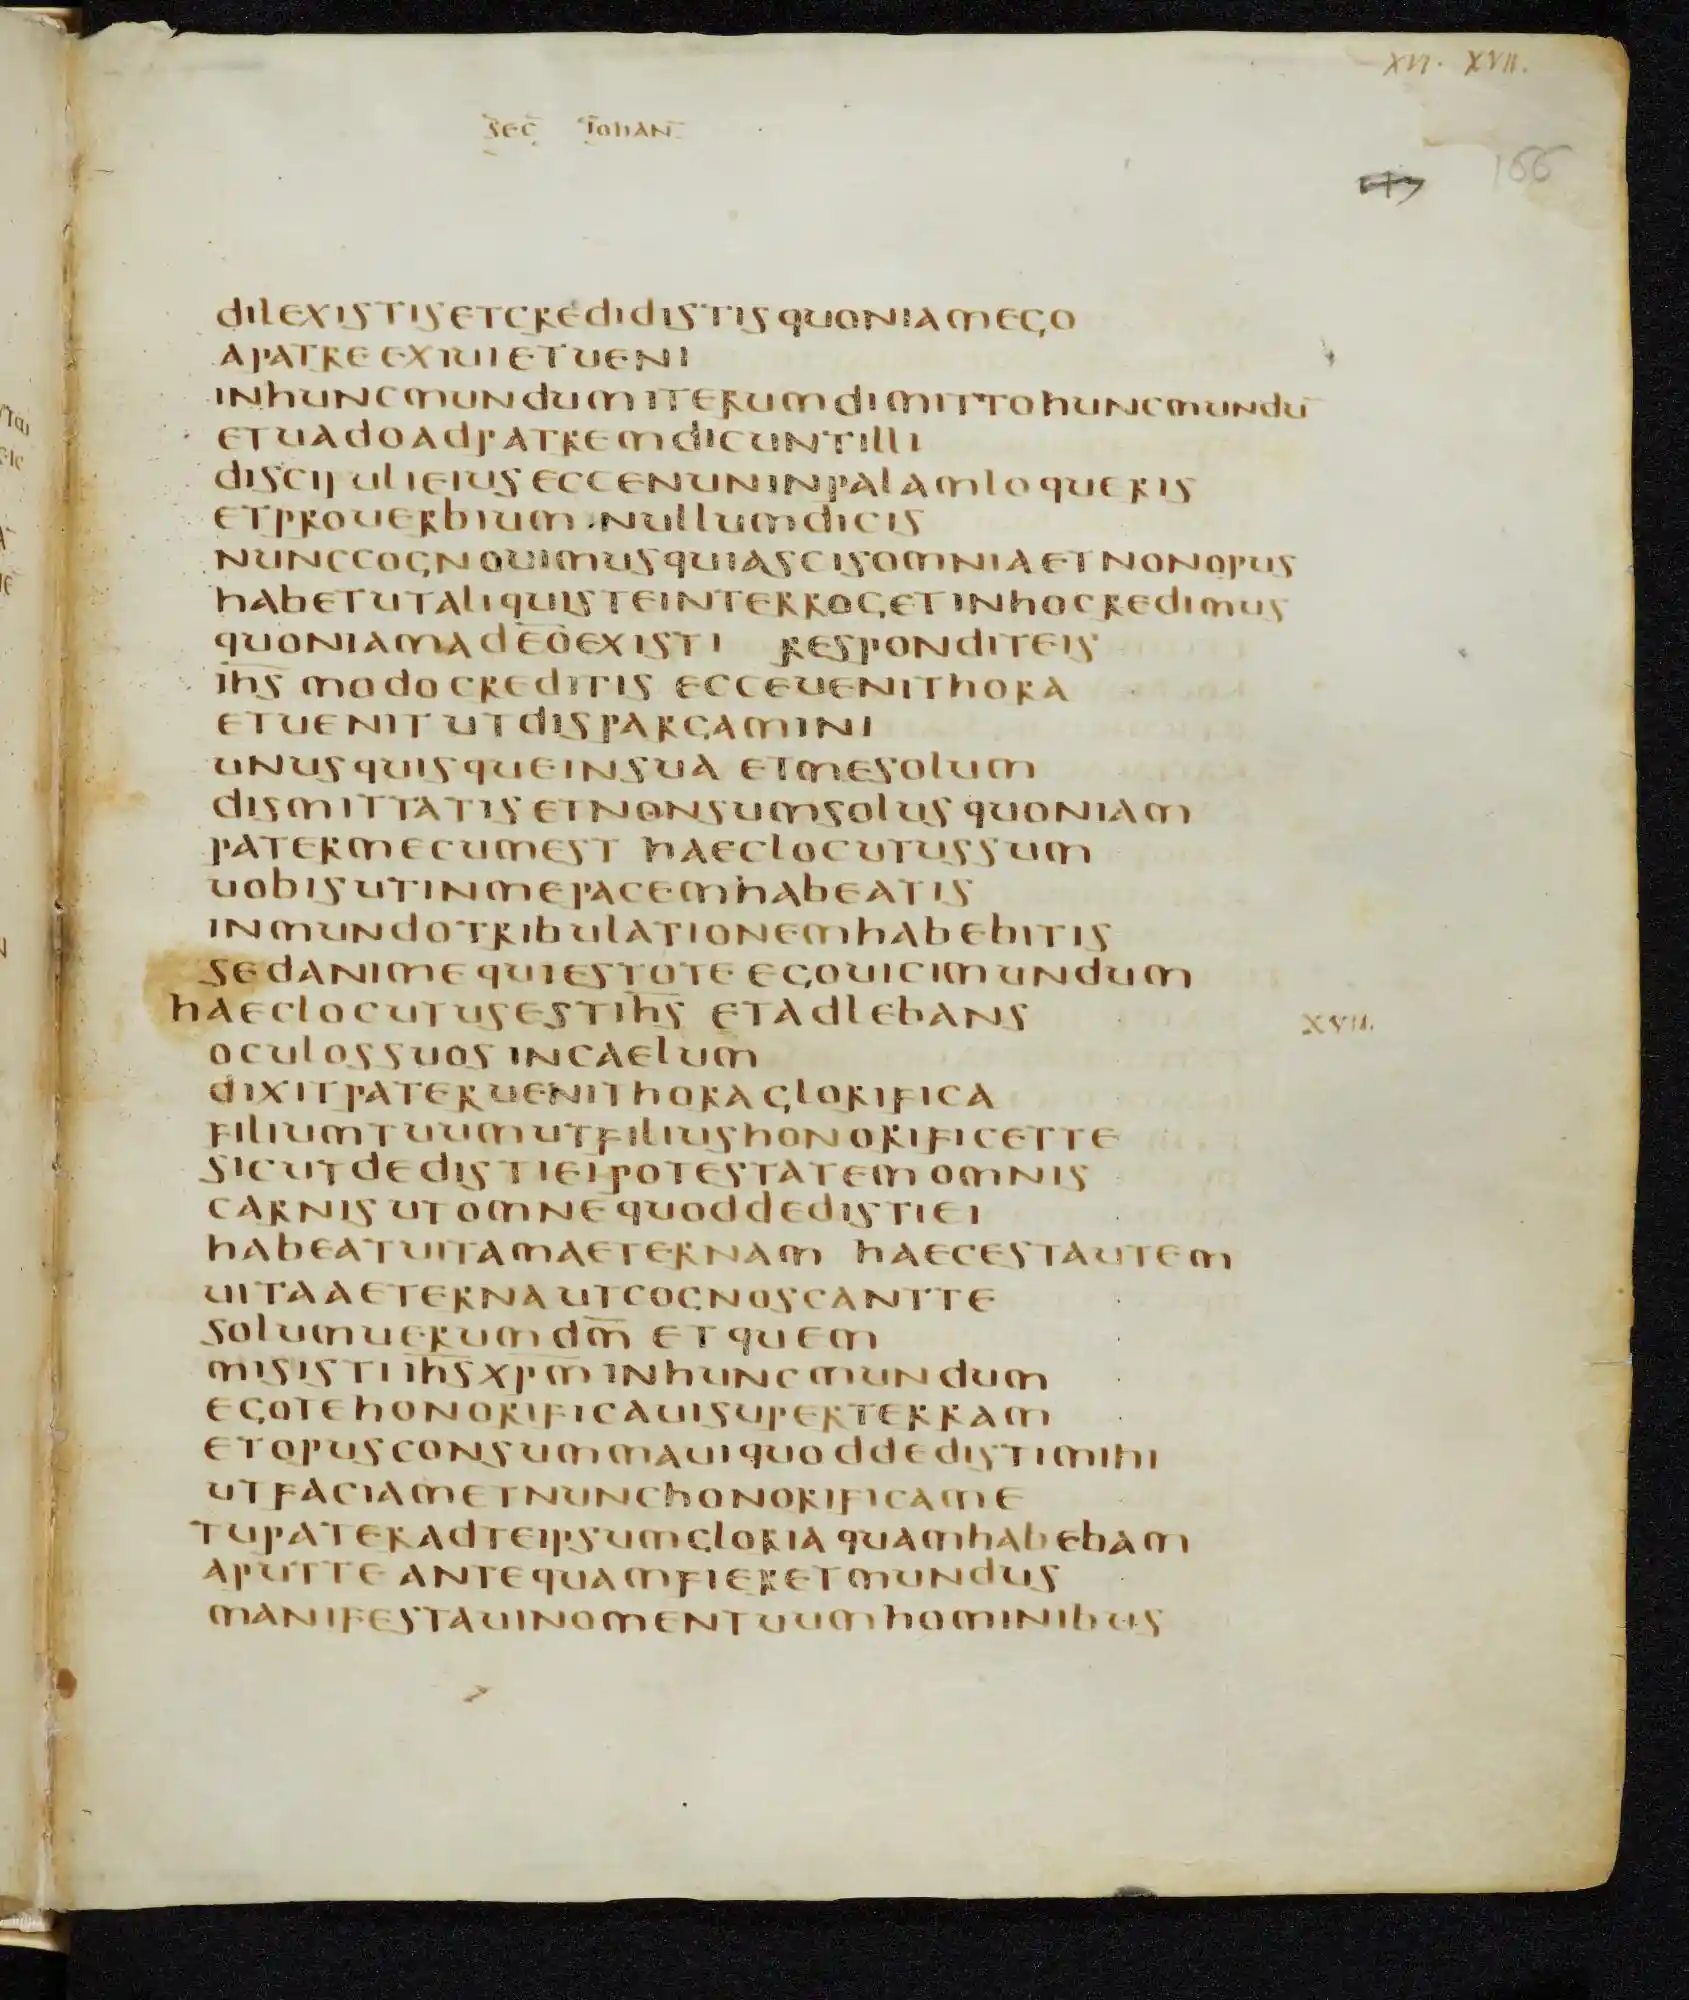 XVI. XVII.
sec̄ Iohan̄
166
dilexistisetcredidistisquoniamego
apatreexiuietueni
inhuncmundumiterumdimittohuncmundū
etuadoadpatremdicuntilli
discipulieiuseccenuninpalamloqueris
etproverbium nullumdicis
nunccognouimusquiascisomniaetnonopus
habetutaliquisteinterrogetinhocredimus
quoniamadēōexisti responditeis
ih̄s modocreditis ecceuenithora
etuenitutdispargamini
unusquisqueinsua etmesolum
dismittatisetnonsumsolusquoniam
patermecumest haeclocutussum
uobisutinmepacemhabeatis
inmundotribulationemhabebitis
sedanimequiestoteegouicimundum
haeclocutusestih̄s etadlebans
XVII.
oculossuosincaelum
dixitpateruenithoraglorifica
filiumtuumutfiliushonorificette
sicutdedistieipotestatemomnis
carnisutomnequoddedistiei
habeatuitamaeternam haecestautem
uitaaeternautcognoscantte
solumuerumdm̄ etquem
misistiih̄sxp̄minhuncmundum
egotehonorificauisuperterram
etopusconsummauiquoddedistimihi
utfaciametnunchonorificame
tupateradteipsumgloriaquamhabebam
aputteantequamfieretmundus
manifestauinomentuumhominibus